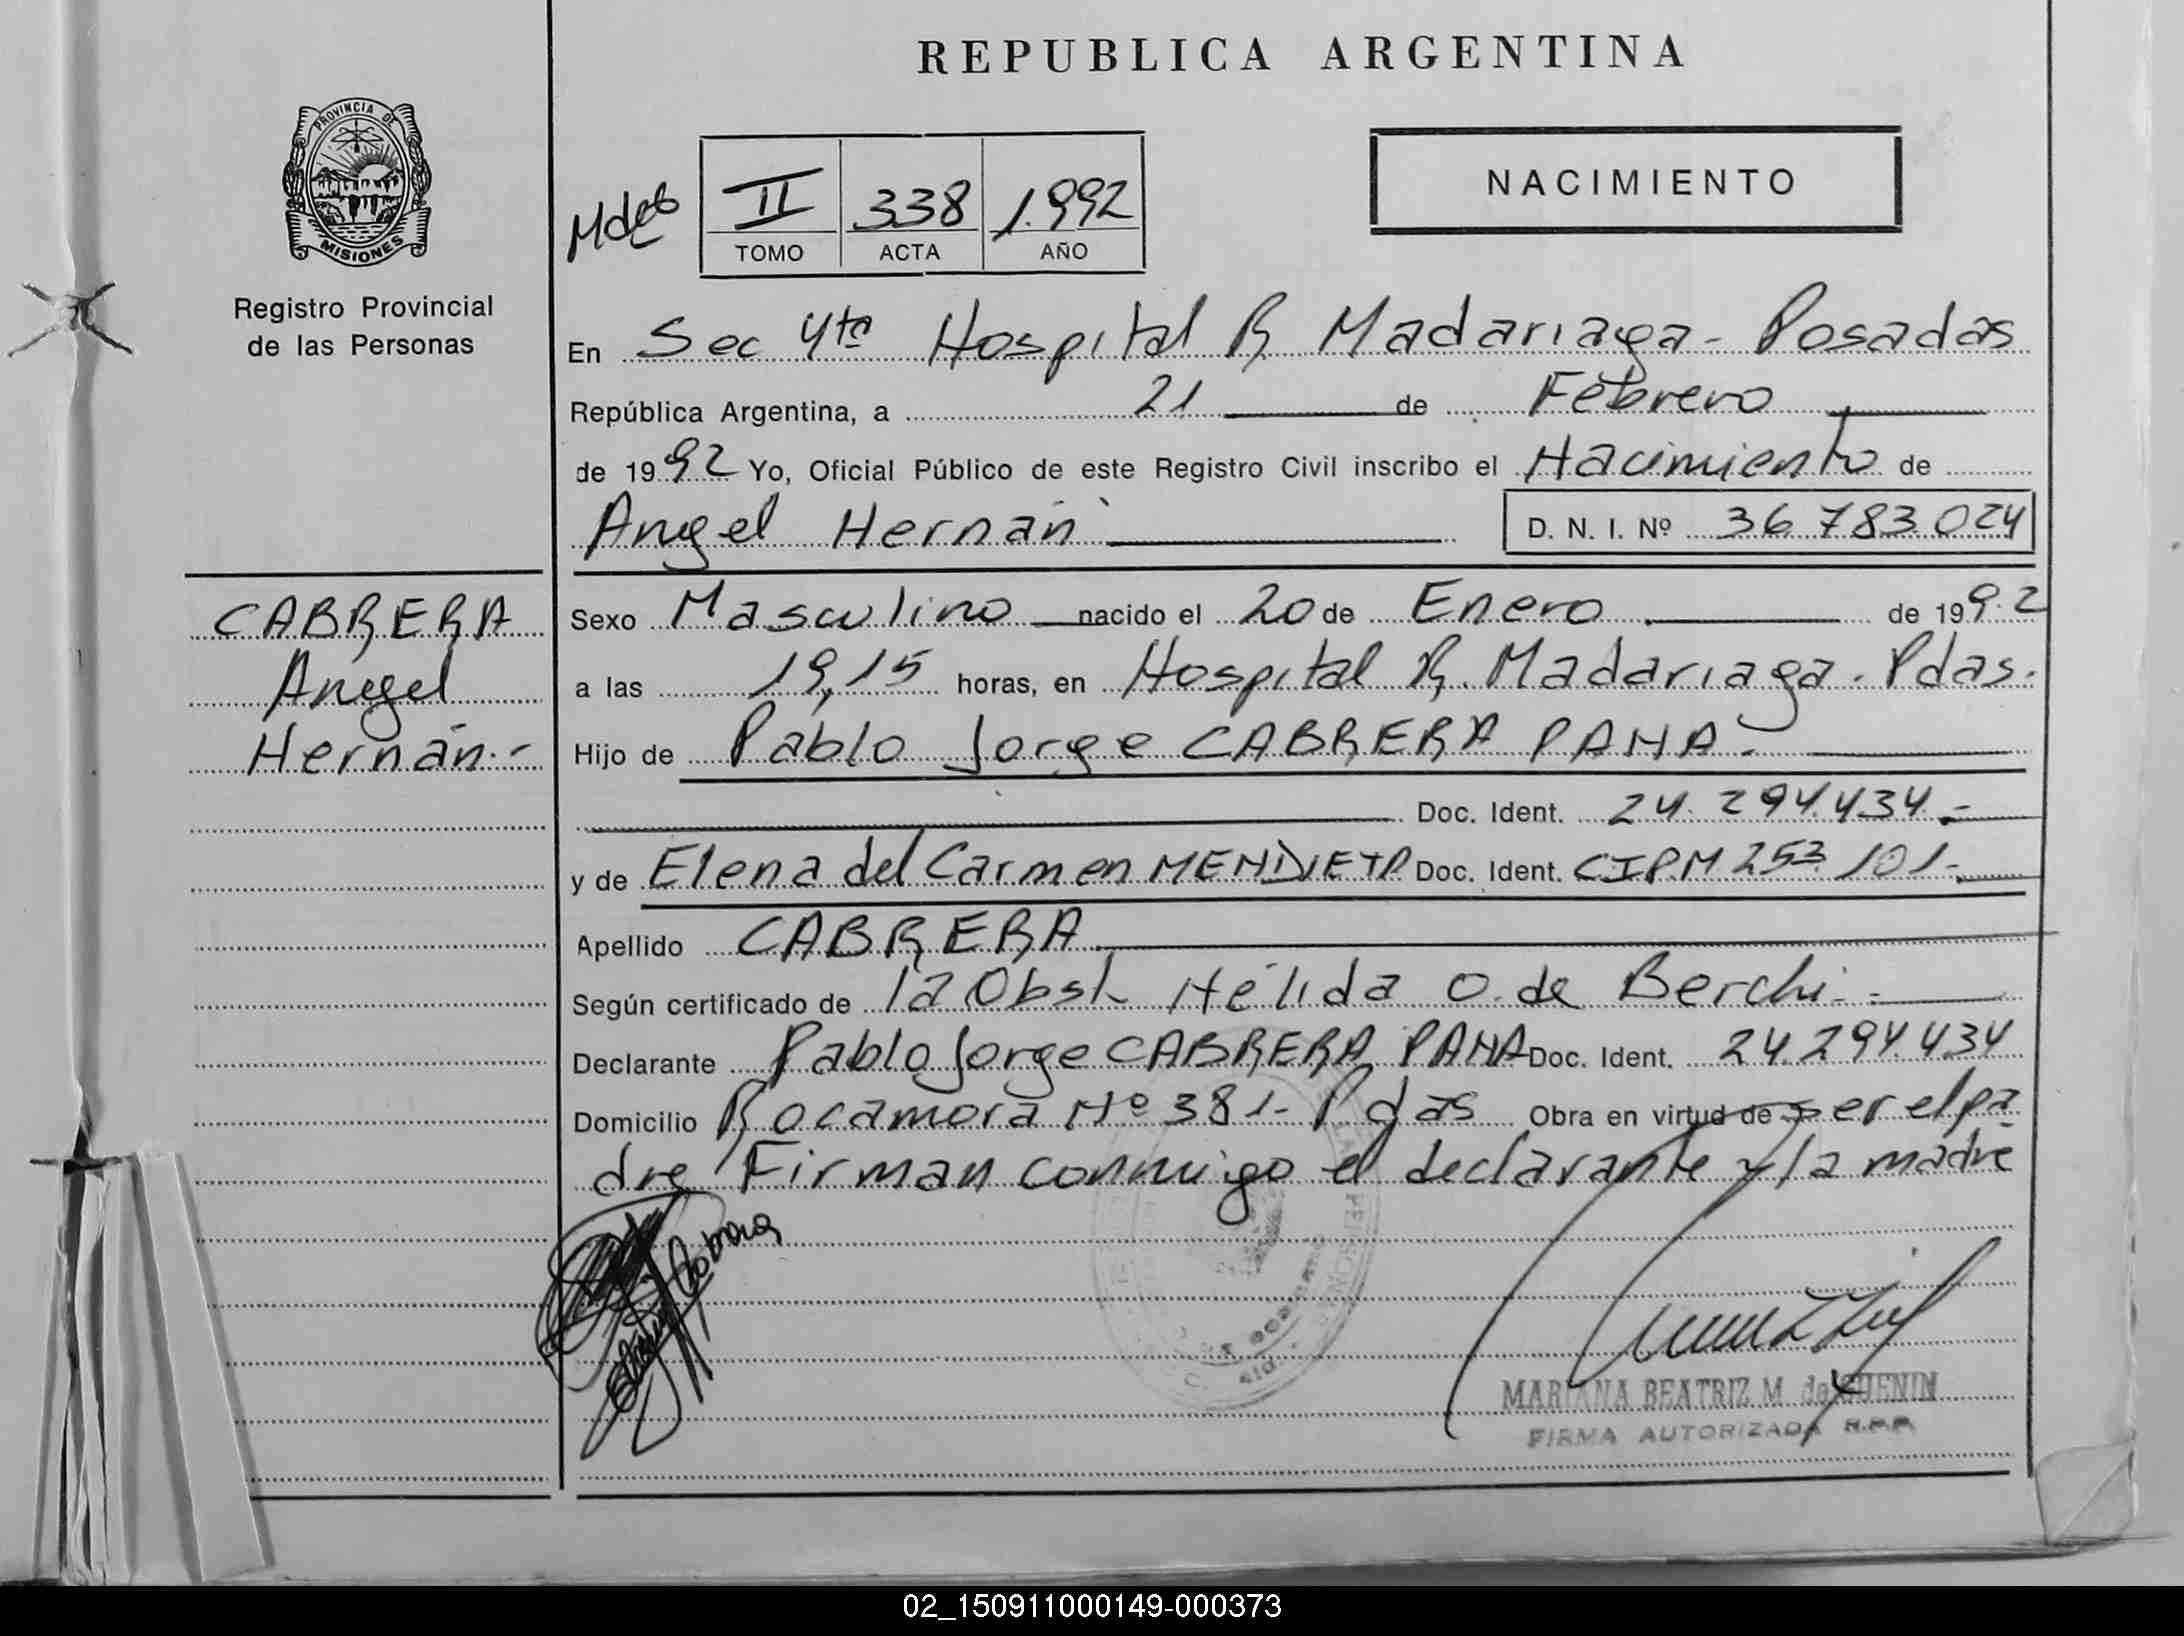 REPUBLICA ARGENTINA
PROVINCIA DE
MISIONES
Registro Provincial
de las Personas
NACIMIENTO
II 338 1.992
TOMO ACTA AÑO
En Sec 4ta Hospital R Madariaga - Posadas
República Argentina, a 21 de Febrero
de 1992 Yo, Oficial Público de este Registro Civil inscribo el Nacimiento de
Angel Hernán D. N. I. Nº 36.783.024
CABRERA
Angel
Hernán.-
Sexo Masculino nacido el 20 de Enero de 1992
a las 19,15 horas, en Hospital R. Madariaga. Pdas.
Hijo de Pablo Jorge CABRERA PANA.
Doc. Ident. 24.294.434.-
y de Elena del Carmen MENDIETA Doc. Ident. CIPM 253.101.-
Apellido CABRERA
Según certificado de la Obst. Nélida O. de Berchi.-
Declarante Pablo Jorge CABRERA PANA Doc. Ident. 24.294.434
Domicilio Rocamora Nº 381- Pdas Obra en virtud de ser el pa
dre Firman conmigo el declarante y la madre
MARIANA BEATRIZ M. de GUENIN
FIRMA AUTORIZADA R.P.P.
02_150911000149-000373